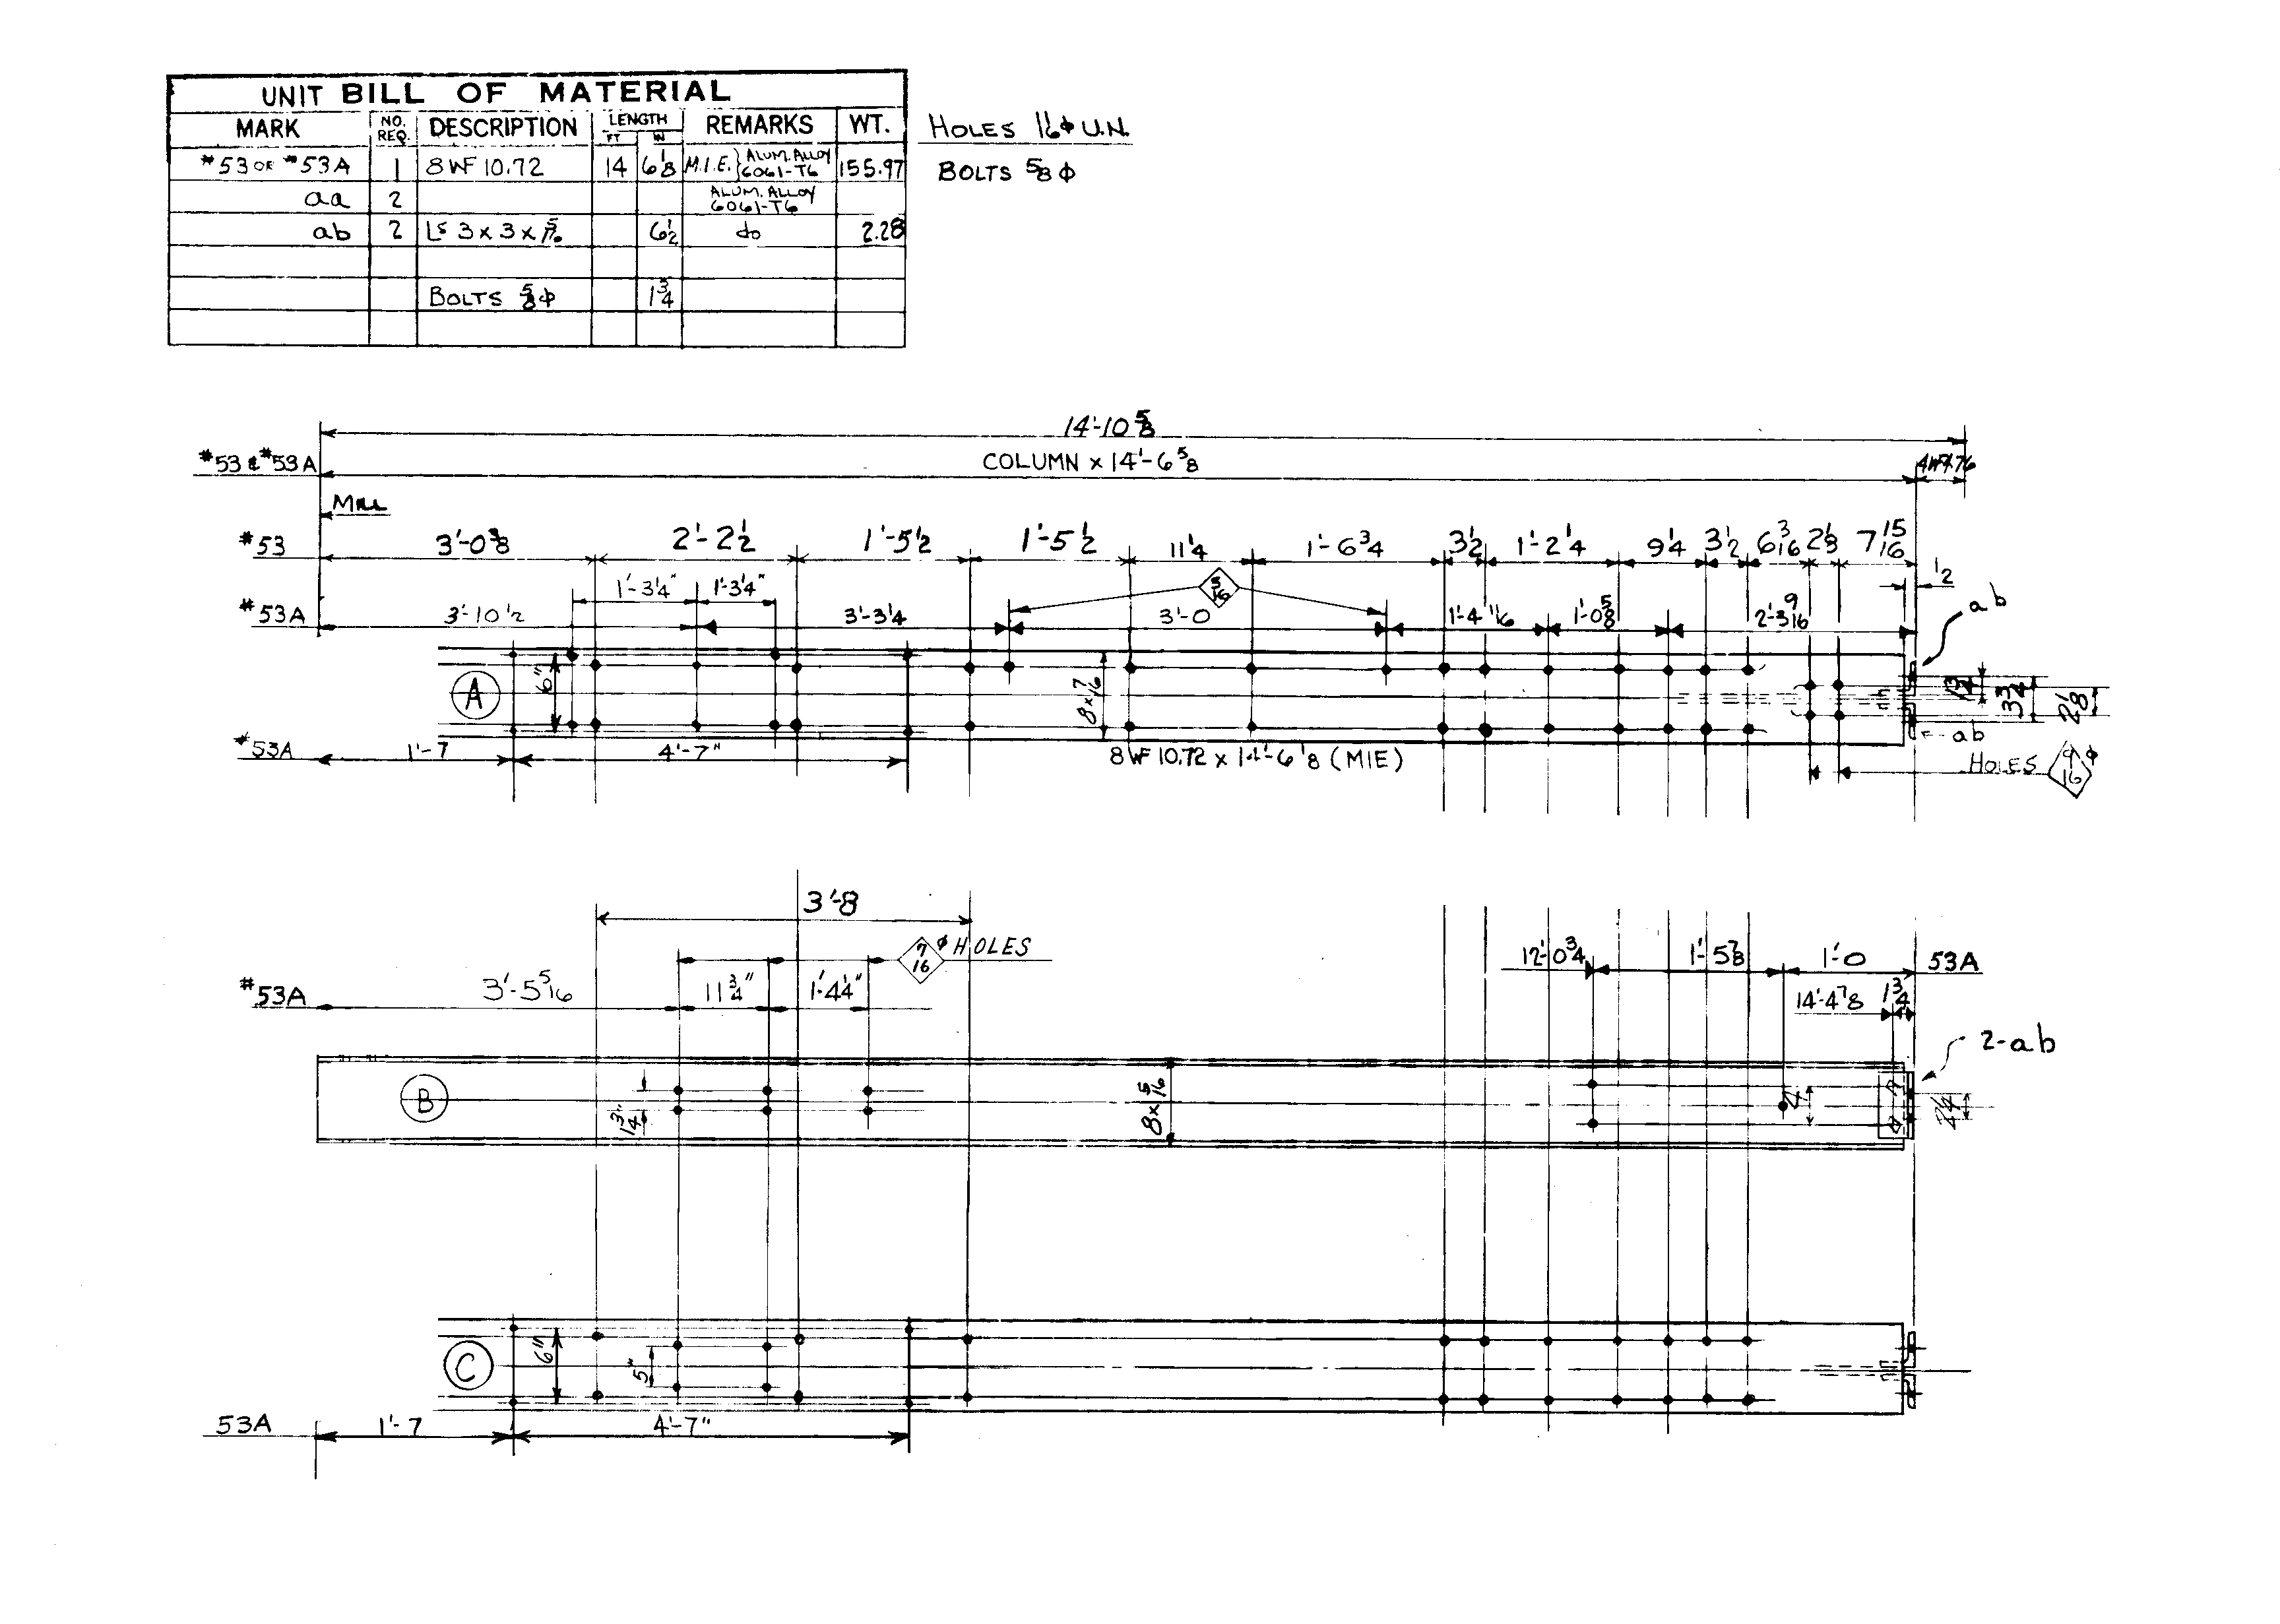 UNIT BILL OF MATERIAL
MARK NO. REQ. DESCRIPTION LENGTH FT IN REMARKS WT.
#53 OR #53A 1 8 WF 10.72 14 6 1/8 M.I.E.} ALUM. ALLOY 6061-T6 155.97
aa 2 ALUM. ALLOY 6061-T6
ab 2 Ls 3 x 3 x 5/16 6 1/2 do 2.28
BOLTS 5/8 φ 1 3/4
HOLES φ U.N.
BOLTS 5/8 φ
14'-10 5/8
#53 & #53A COLUMN x 14'-6 5/8 4WF4.76
MILL
#53 3'-0 3/8 2'-2 1/2 1'-5 1/2 1'-5 1/2 11 1/4 1'-6 3/4 3 1/2 1'-2 1/4 9 1/4 3 1/2 6 3/16 2 1/8 7 15/16
1/2
1'-3 1/4" 1'-3 1/4" 5/16
#53A 3'-10 1/2 3'-3 1/4 3'-0 1'-4 11/16 1'-0 5/8 2'-3 9/16
ab
A 6" 8 x 7/16 1 3/4 3 3/4 2 1/8
ab
#53A 1'-7 4'-7" 8 WF 10.72 x 14'-6 1/8 (MIE)
HOLES 9/16 φ
3'-8
7/16 φ HOLES
12'-0 3/4 1'-5 7/8 1'-0 53A
#53A 3'-5 5/16 11 3/4" 1'-4 1/4"
14'-4 7/8 1 3/4
2-ab
B 1 3/4" 8 x 5/16 4 2 1/4
C 6" 5"
53A 1'-7 4'-7"